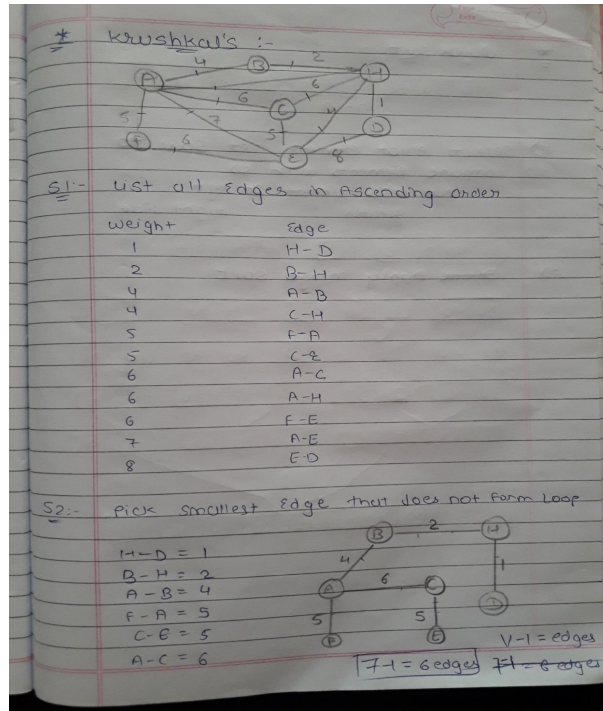 * Krushkal's :-
4 B 2 H
A 6
6 C 4 1
5 7 5 D
F 6 E 8
S1:- List all Edges in Ascending order
Weight Edge
1 H-D
2 B-H
4 A-B
4 C-H
5 F-A
5 C-E
6 A-C
6 A-H
6 F-E
7 A-E
8 E-D
S2:- Pick smallest Edge that does not form Loop
B 2 H
H-D = 1
B-H = 2 4 1
A-B = 4 A 6 C
F-A = 5 5 5 D
C-E = 5 F E
V-1 = edges
A-C = 6 7-1 = 6 edges 7-1 = 6 edges